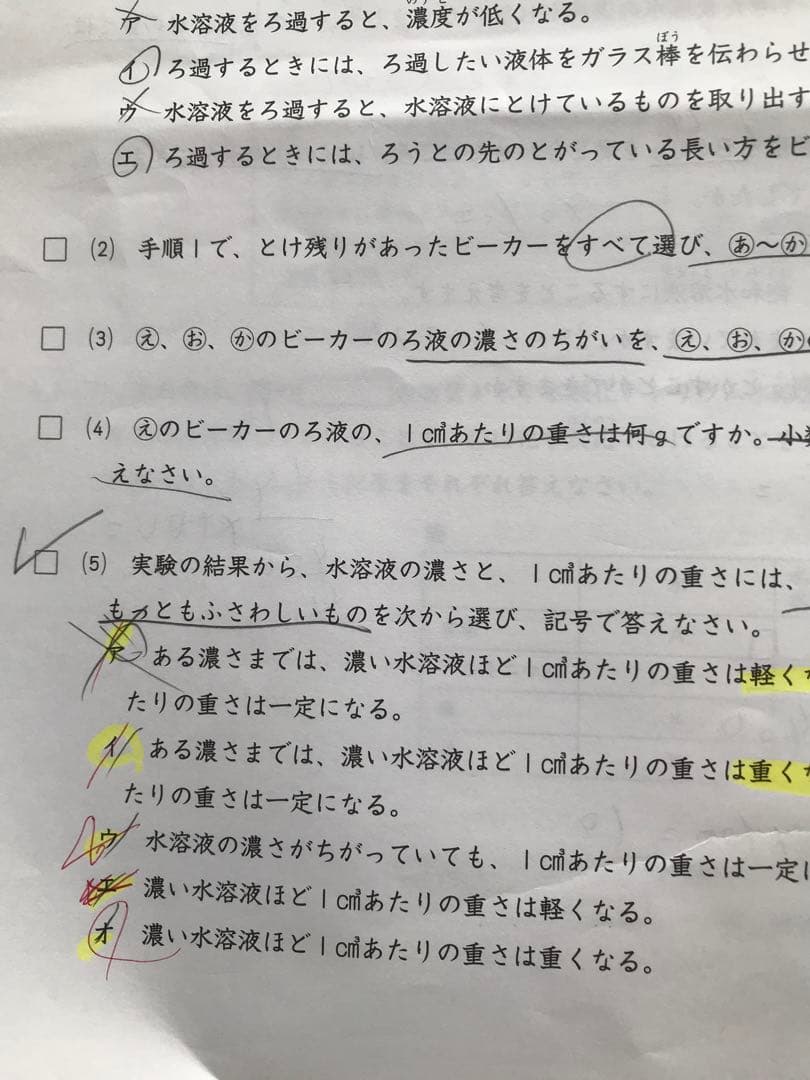 ア 水溶液をろ過すると、濃度が低くなる。
イ ろ過するときには、ろ過したい液体をガラス棒を伝わらせ
ぼう
ウ 水溶液をろ過すると、水溶液にとけているものを取り出す
エ ろ過するときには、ろうとの先のとがっている長い方をビ
□ (2) 手順1で、とけ残りがあったビーカーをすべて選び、あ～か
□ (3) え、お、かのビーカーのろ液の濃さのちがいを、え、お、かの
□ (4) えのビーカーのろ液の、1cm³あたりの重さは何gですか。小数
えなさい。
□ (5) 実験の結果から、水溶液の濃さと、1cm³あたりの重さには、
もっともふさわしいものを次から選び、記号で答えなさい。
ア ある濃さまでは、濃い水溶液ほど1cm³あたりの重さは軽くな
たりの重さは一定になる。
イ ある濃さまでは、濃い水溶液ほど1cm³あたりの重さは重くな
たりの重さは一定になる。
ウ 水溶液の濃さがちがっていても、1cm³あたりの重さは一定に
エ 濃い水溶液ほど1cm³あたりの重さは軽くなる。
オ 濃い水溶液ほど1cm³あたりの重さは重くなる。